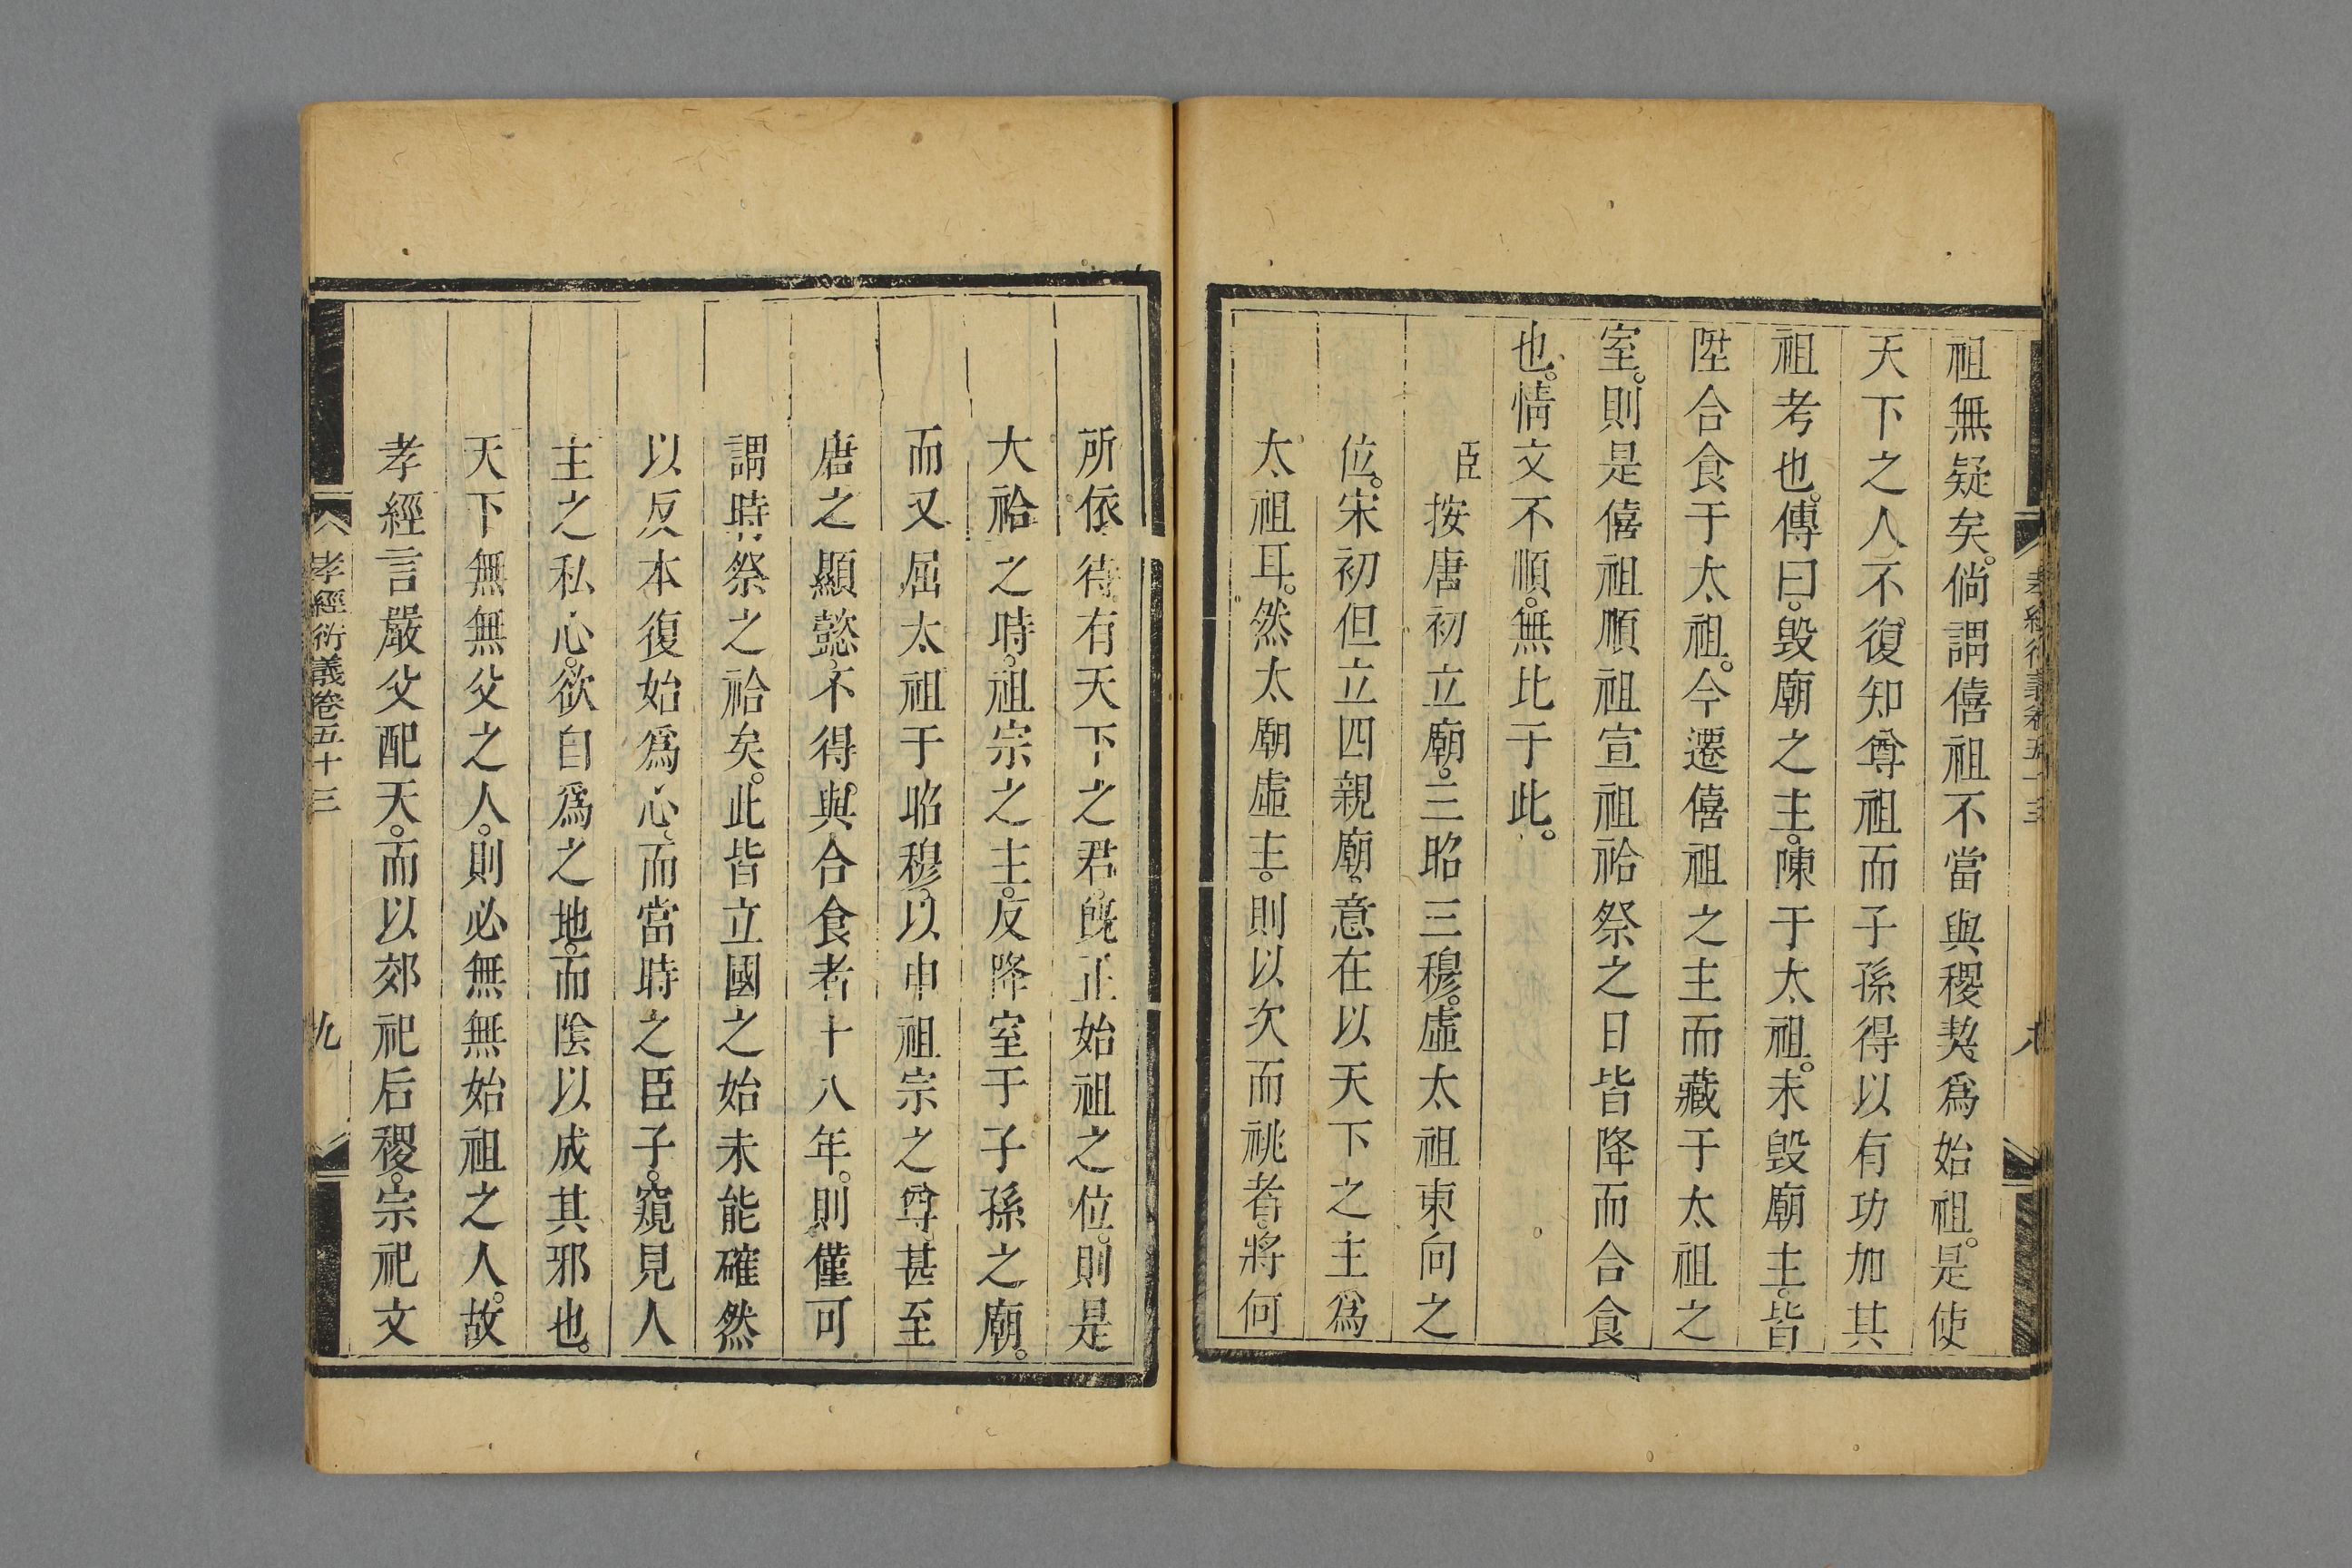 孝經衍義卷五十三
八
祖無疑矣。倘謂僖祖不當與稷契爲始祖。是使
天下之人不復知尊祖而子孫得以有功加其
祖考也。傳曰。毀廟之主。陳于太祖。未毀廟主。皆
陞合食于太祖。今遷僖祖之主而藏于太祖之
室。則是僖祖順祖宣祖祫祭之日皆降而合食
也。情文不順。無比于此。
臣按唐初立廟。三昭三穆。虛太祖東向之
位。宋初但立四親廟。意在以天下之主爲
太祖耳。然太廟虛主。則以次而祧者。將何
所依。待有天下之君。旣正始祖之位。則是
大祫之時。祖宗之主。反降室于子孫之廟。
而又屈太祖于昭穆。以申祖宗之尊。甚至
唐之顯懿。不得與合食者十八年。則僅可
謂時祭之祫矣。此皆立國之始未能確然
以反本復始爲心。而當時之臣子。窺見人
主之私心。欲自爲之地。而陰以成其邪也。
天下無無父之人。則必無無始祖之人。故
孝經言嚴父配天。而以郊祀后稷。宗祀文
孝經衍義卷五十三
九